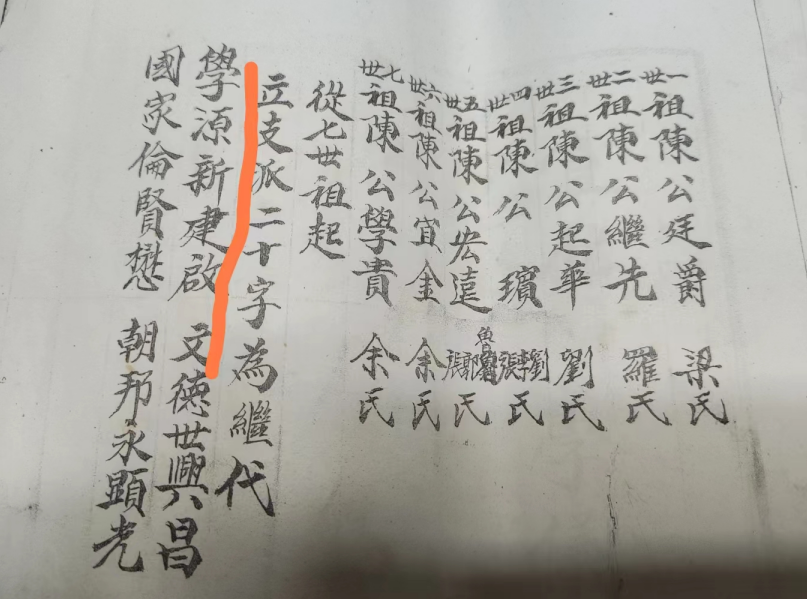 一世祖陳公廷爵 梁氏
二世祖陳公繼先 羅氏
三世祖陳公起華 劉氏
四世祖陳公璸 劉李張氏
五世祖陳公宏遠 張氏
六世祖陳公宜金 余氏
七世祖陳公學貴 余氏
從七世祖起
立支派二十字為繼代
學源新建啟 文德世興昌
國家倫賢懋 朝邦永顯光